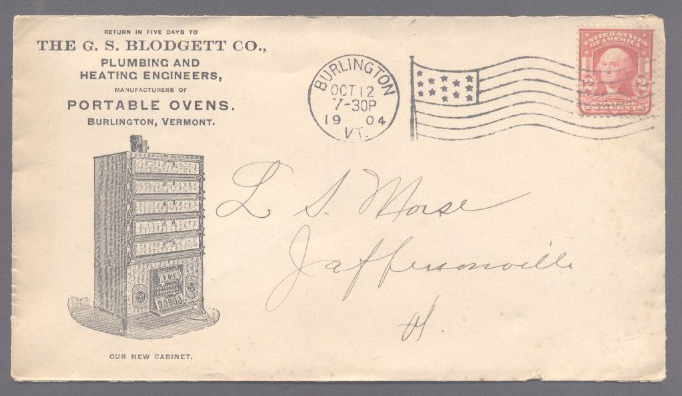 RETURN IN FIVE DAYS TO
THE G. S. BLODGETT CO.,
PLUMBING AND
HEATING ENGINEERS,
MANUFACTURERS OF
PORTABLE OVENS.
BURLINGTON, VERMONT.
OUR NEW CABINET.
BURLINGTON
OCT 12
7-30P
19 04
VT.
UNITED STATES
OF AMERICA
L S. Morse
Jaffersonville
Vt.